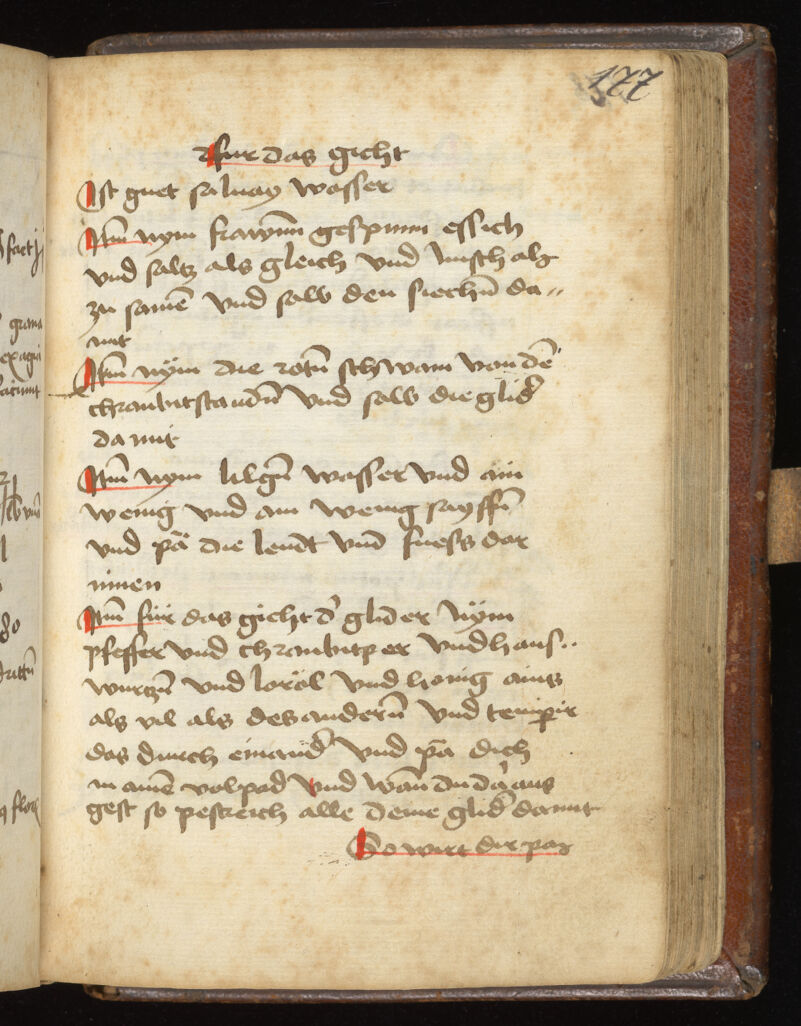 177
Fur das gicht
Ist guet saluay wasser
Itm̄ nym frawnn̄ gespunn essich
vnd saltz als gleich vnd misch als
zu samē vnd salb den siechn̄ da〃
mit
Itm̄ nÿm die rotn̄ schwam von dē
chranbitstaudn̄ vnd salb die glid̕
da mit
Itm̄ nym lilgn̄ wasser vnd ain
wenig vnd ain wenig sayffn̄
vnd pā die lendt vnd fuess dar
innen
Itm̄ für das gicht d̕ glider nÿm
pfeffer vnd chranbitper vnd haus〃
wurzn̄ vnd loröl vnd honig ains
als vil als des andern̄ vnd temperir
das durch einand̕ vnd pā dich
in ainē volpad vnd wān du dar̕aus
gest so pestreich alle deine glid̕ damit
So wirt dir pas
fact
grana
exagia
flor